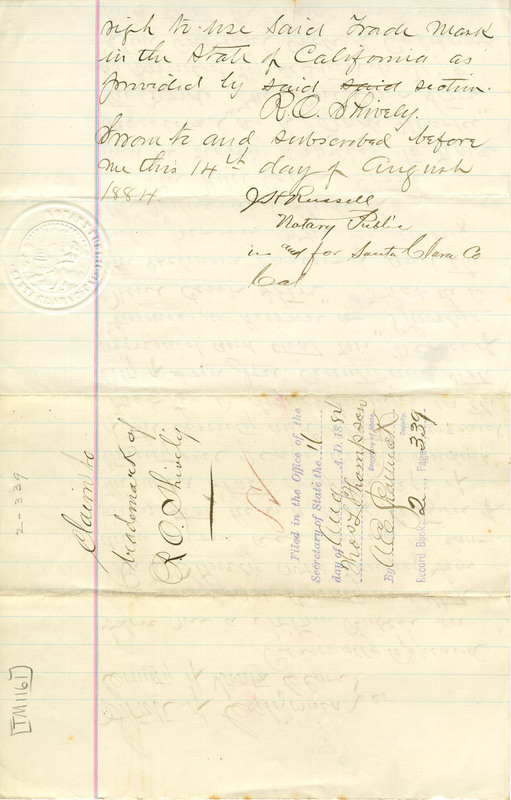 righ to use Said Trade Mark
in the State of California as
provided by said said section.
R. O. Shively.
Sworn to and subscribed before
me this 14th day of August
1884.
J H Russell
Notary Public
in and for Santa Clara Co
Cal
Claim to
trademark of
R O. Shively
Filed in the Office of the
Secretary of State the
day of Aug A.D. 188
Thos L Thompson
Secretary of State
By
Deputy.
Record Book 2 Page 339
2-339
[TM1161]